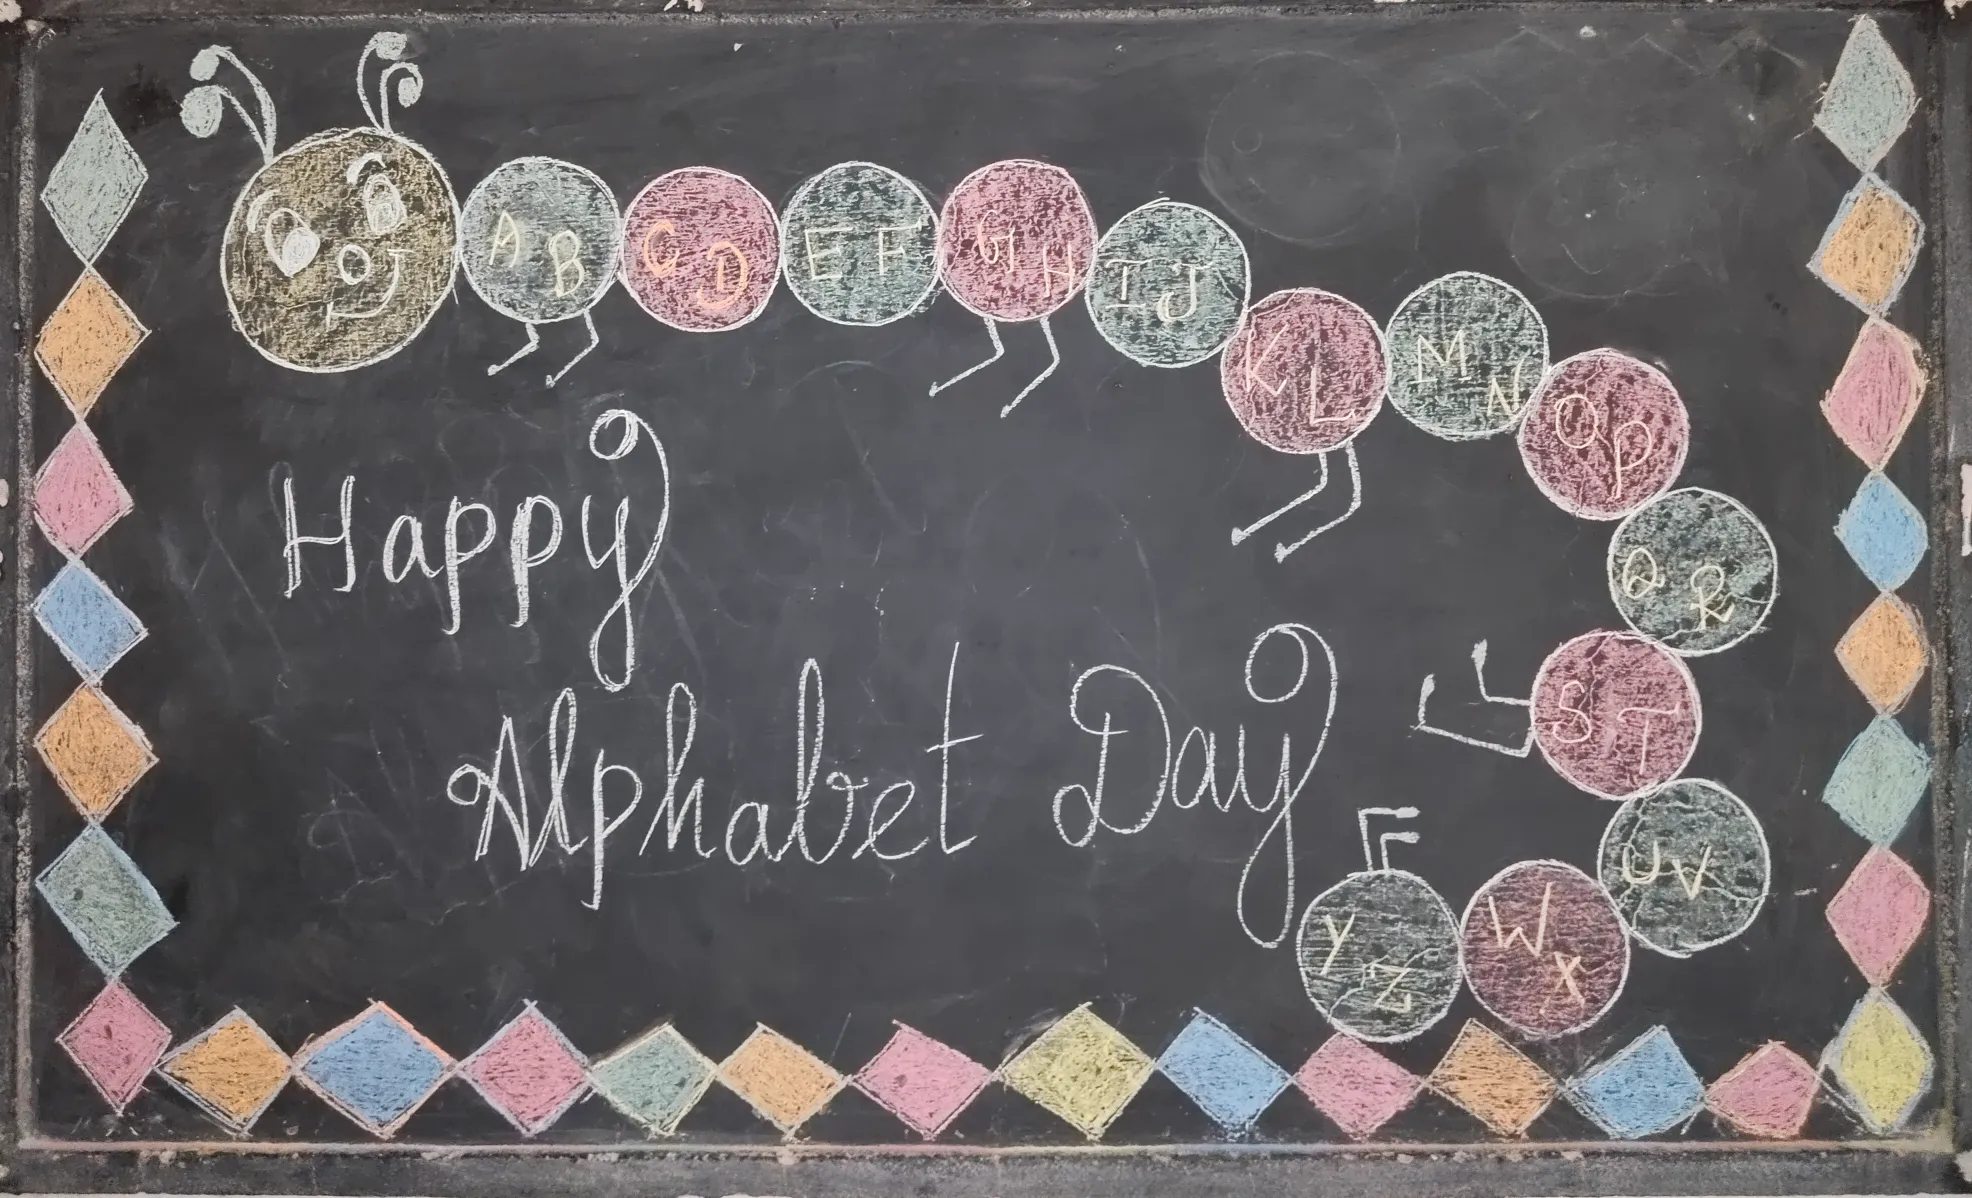 A B C D E F G H I J K L M N O P Q R S T U V W X Y Z
Happy
Alphabet Day